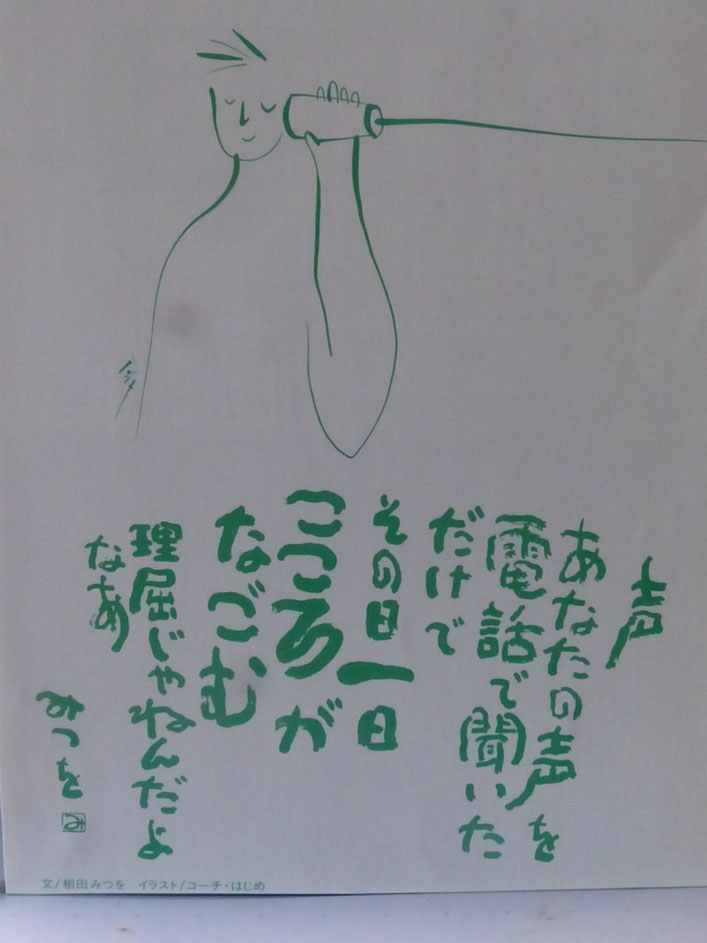 声
あなたの声を
電話で聞いた
だけで
その日一日
こころが
なごむ
理屈じゃねんだよ
なあ
みつを
み
文/相田みつを イラスト/コーチ・はじめ